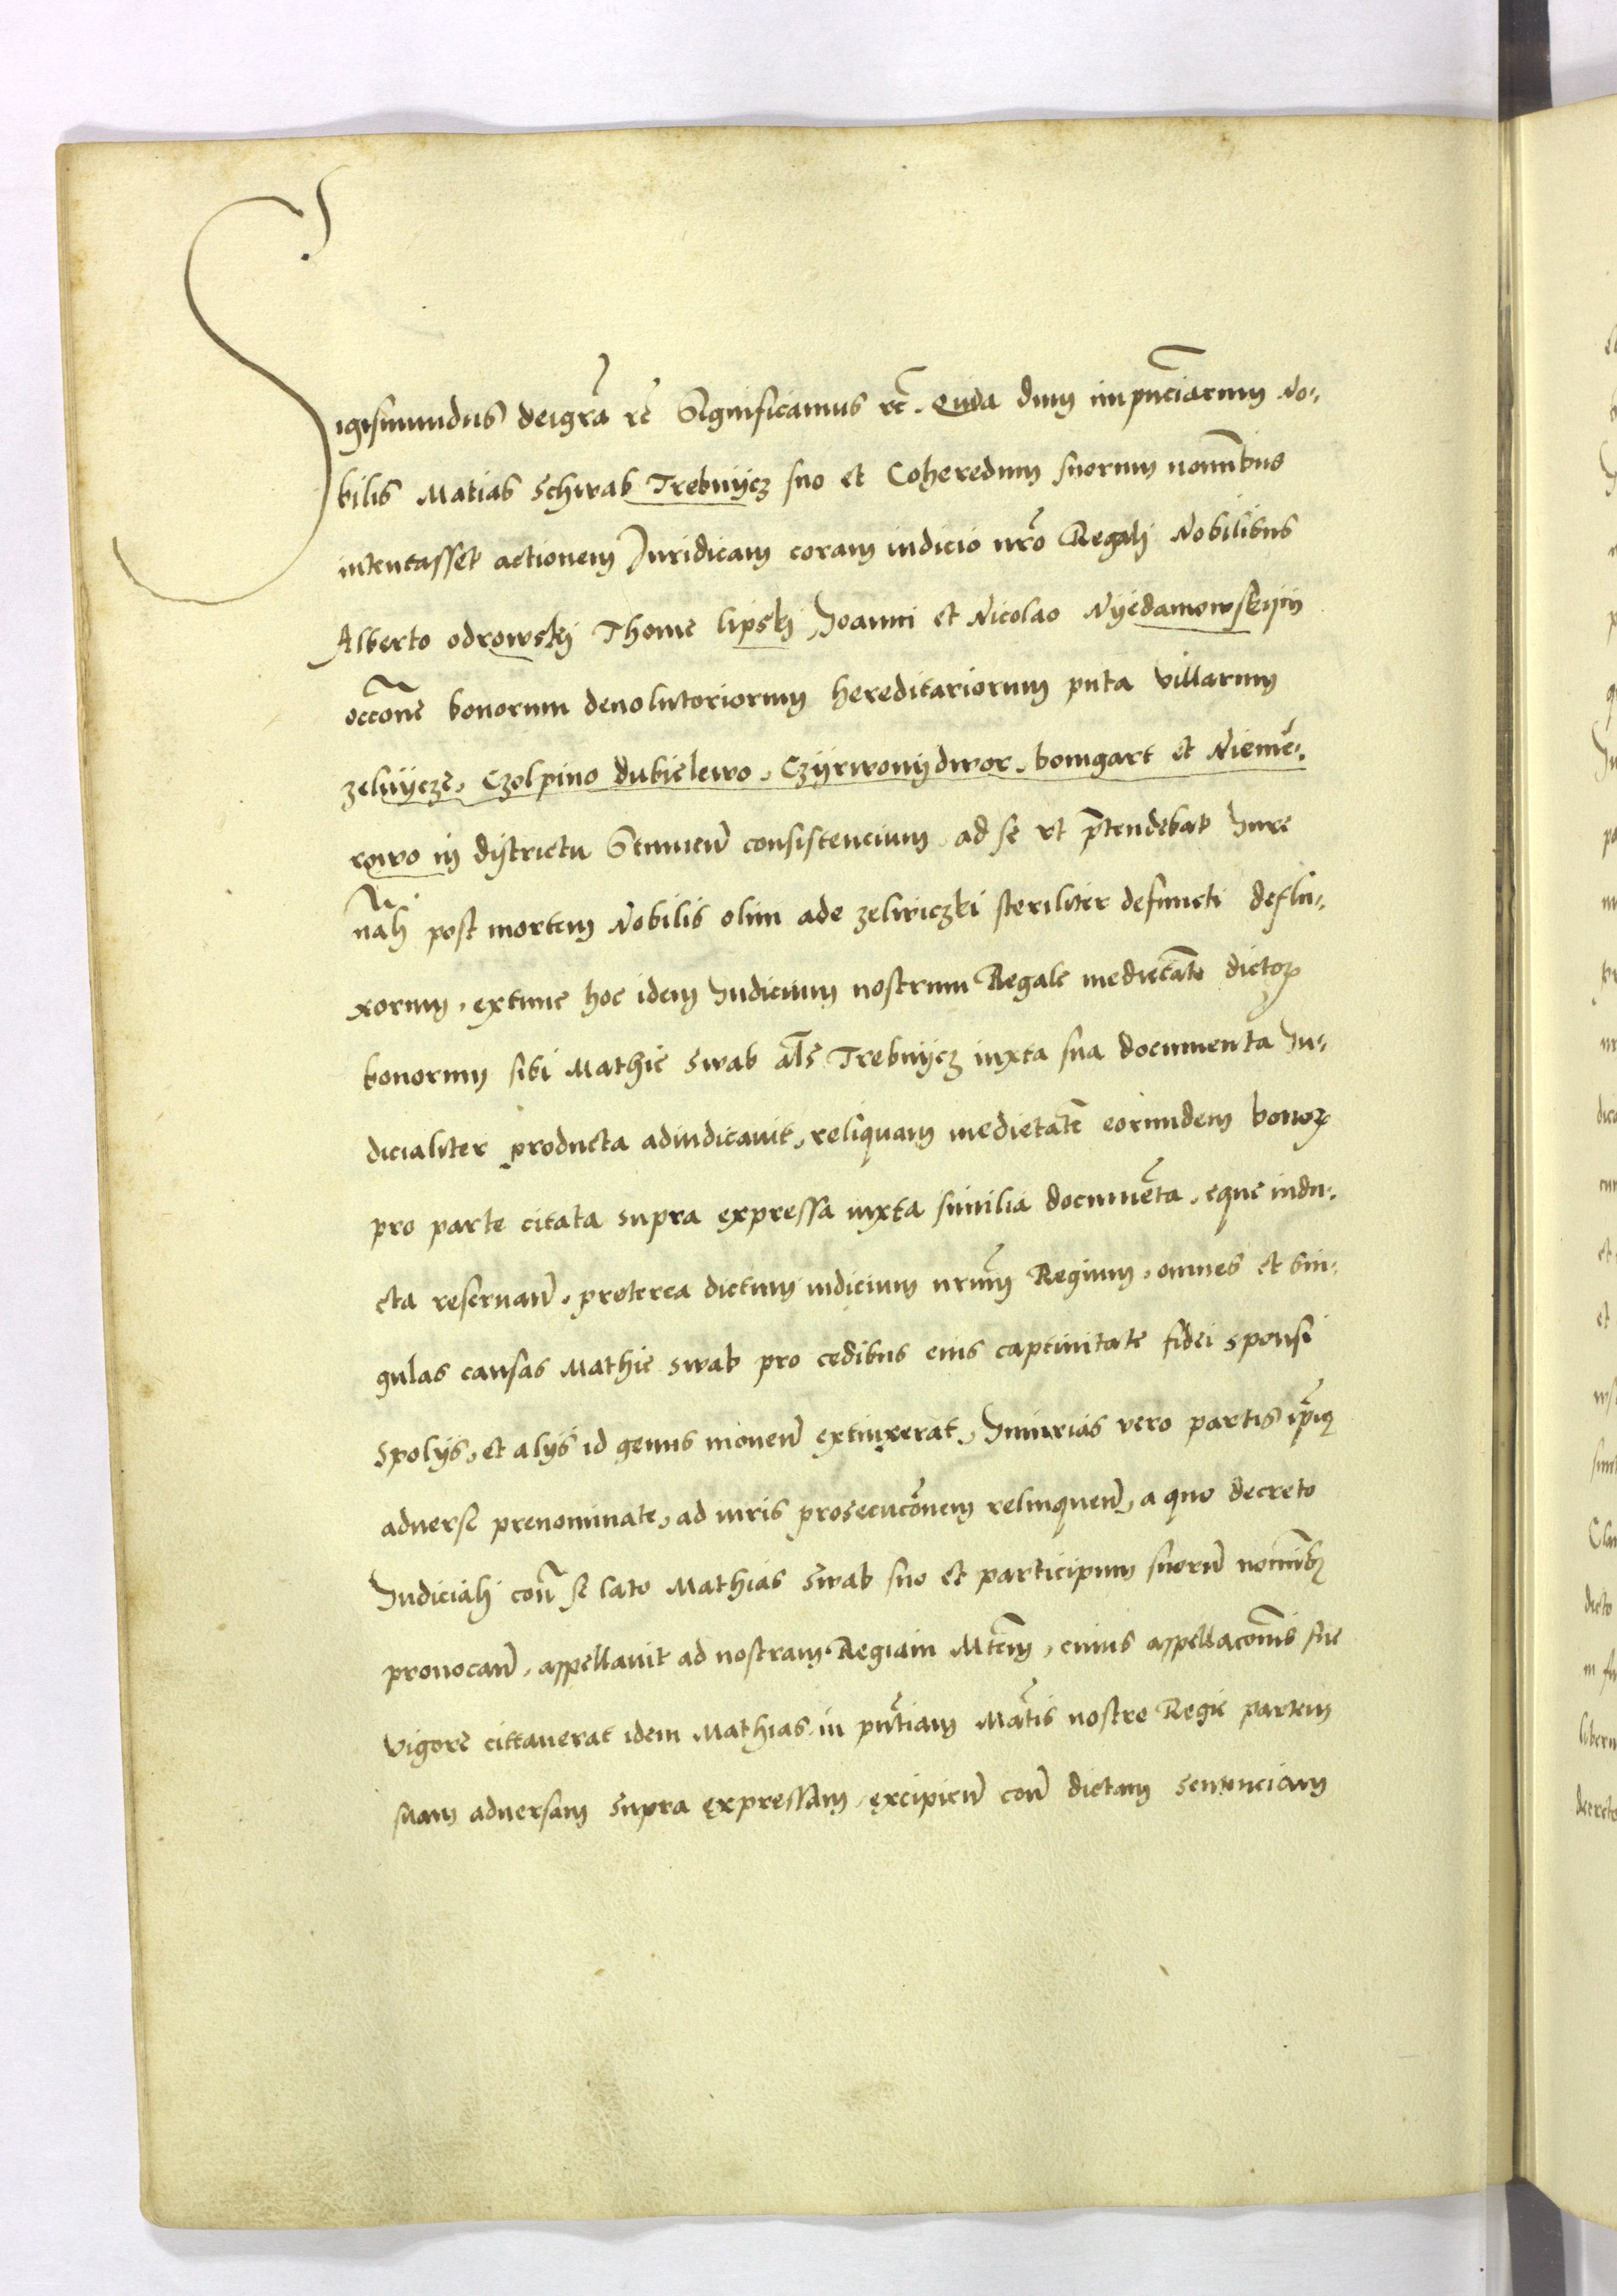 Sigismundus deigrã rc̃ Significamus rc̃. Quia dum inpñciarum No-
bilis Matias Schwab Trebnÿcz suo et Coheredum suorum nominibus
intentasset actionem Juridicam coram iudicio nr̃o Regali Nobilibus
Alberto odrowski Thome lipski Joanni et Nicolao Nÿedamowskÿm
occõne bonorum devolutoriorum hereditariorum puta villarum
zelnÿcze, Czolpino dubielewo, Czÿrwonÿdwor, bomgart et Niemẽ-
rowo in districtu Stumen̄ consistencium, ad se vt p̃tendebat Jure
nãli post mortem Nobilis olim ade zelniczki steriliter defuncti deflu-
xorum, extunc hoc idem Judicium nostrum Regale medietãte dictoꝝ
bonorum sibi Mathie Swab al̃s Trebnÿcz iuxta sua documenta Ju-
dicialiter producta adiudicavit, reliquam medietatẽ eorundem bonoꝝ
pro parte citata supra expressa iuxta similia documẽta, eque indu-
cta reservan̄, preterea dictum iudicium nr̃um Regium, omnes et sin-
gulas causas Mathie Swab pro cedibus eius captivitate fidei sponsi
Spolÿs, et alÿs id genus moven̄ extinxerat, Iniurias vero partis ip̃iq
adverse prenominate, ad iuris prosecucõnem relinquen̄, a quo decreto
Judiciali con̄ se lato Mathias Swab suo et participum suorũ nominibꝫ
provocan̄, appellavit ad nostram Regiam Mtẽm, cuius appellacõnis sue
vigore cittaverat idem Mathias in pñtiam Mãtis nostre Regie partem
suam adversam supra expressam, excipien̄ con̄ dictam sentenciam